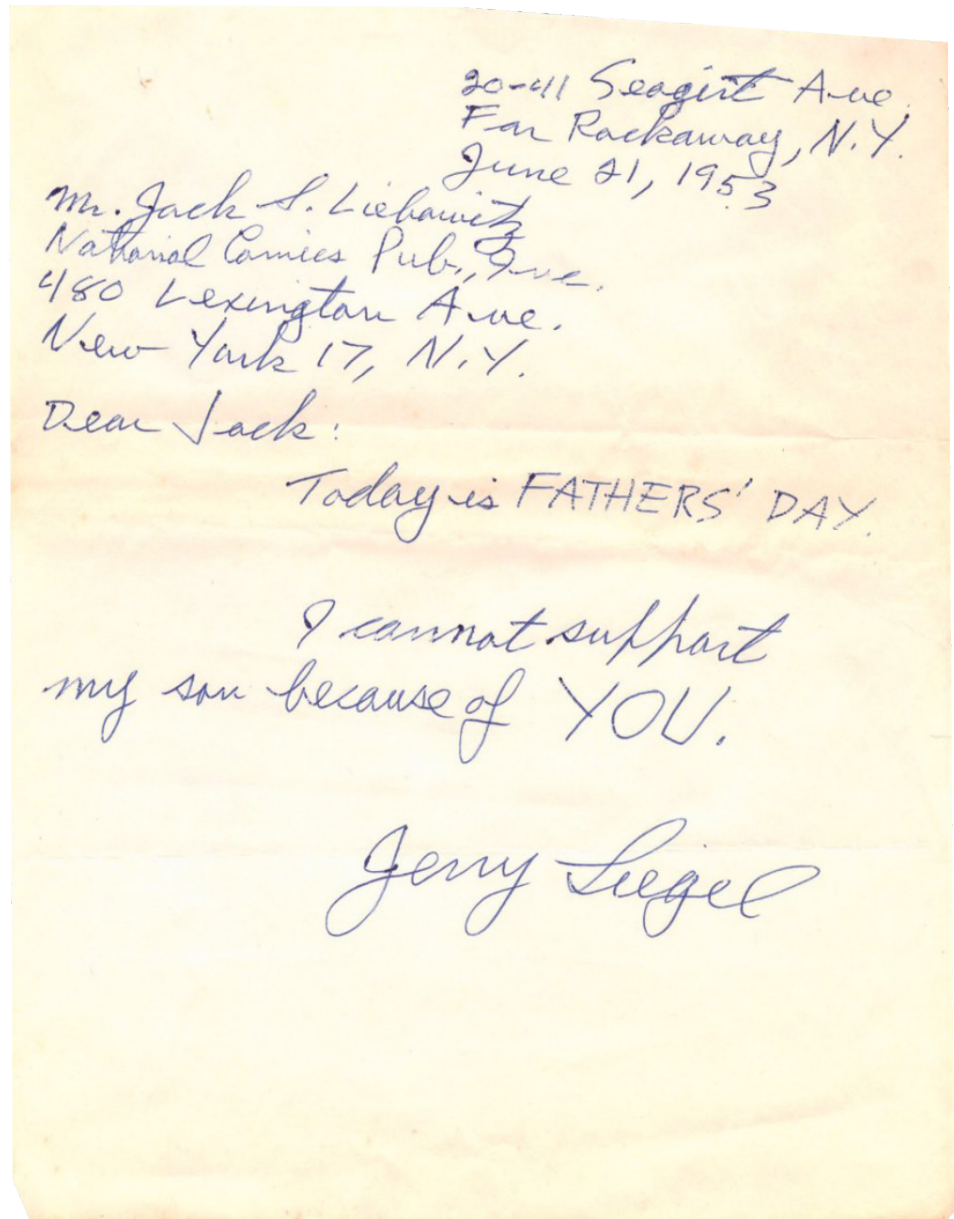 20-41 Seagirt Ave.
Far Rockaway, N.Y.
June 21, 1953
Mr. Jack S. Liebowitz
National Comics Pub., Inc.
480 Lexington Ave.
New York 17, N.Y.
Dear Jack:
Today is FATHERS' DAY.
I cannot support
my son because of YOU.
Jerry Siegel